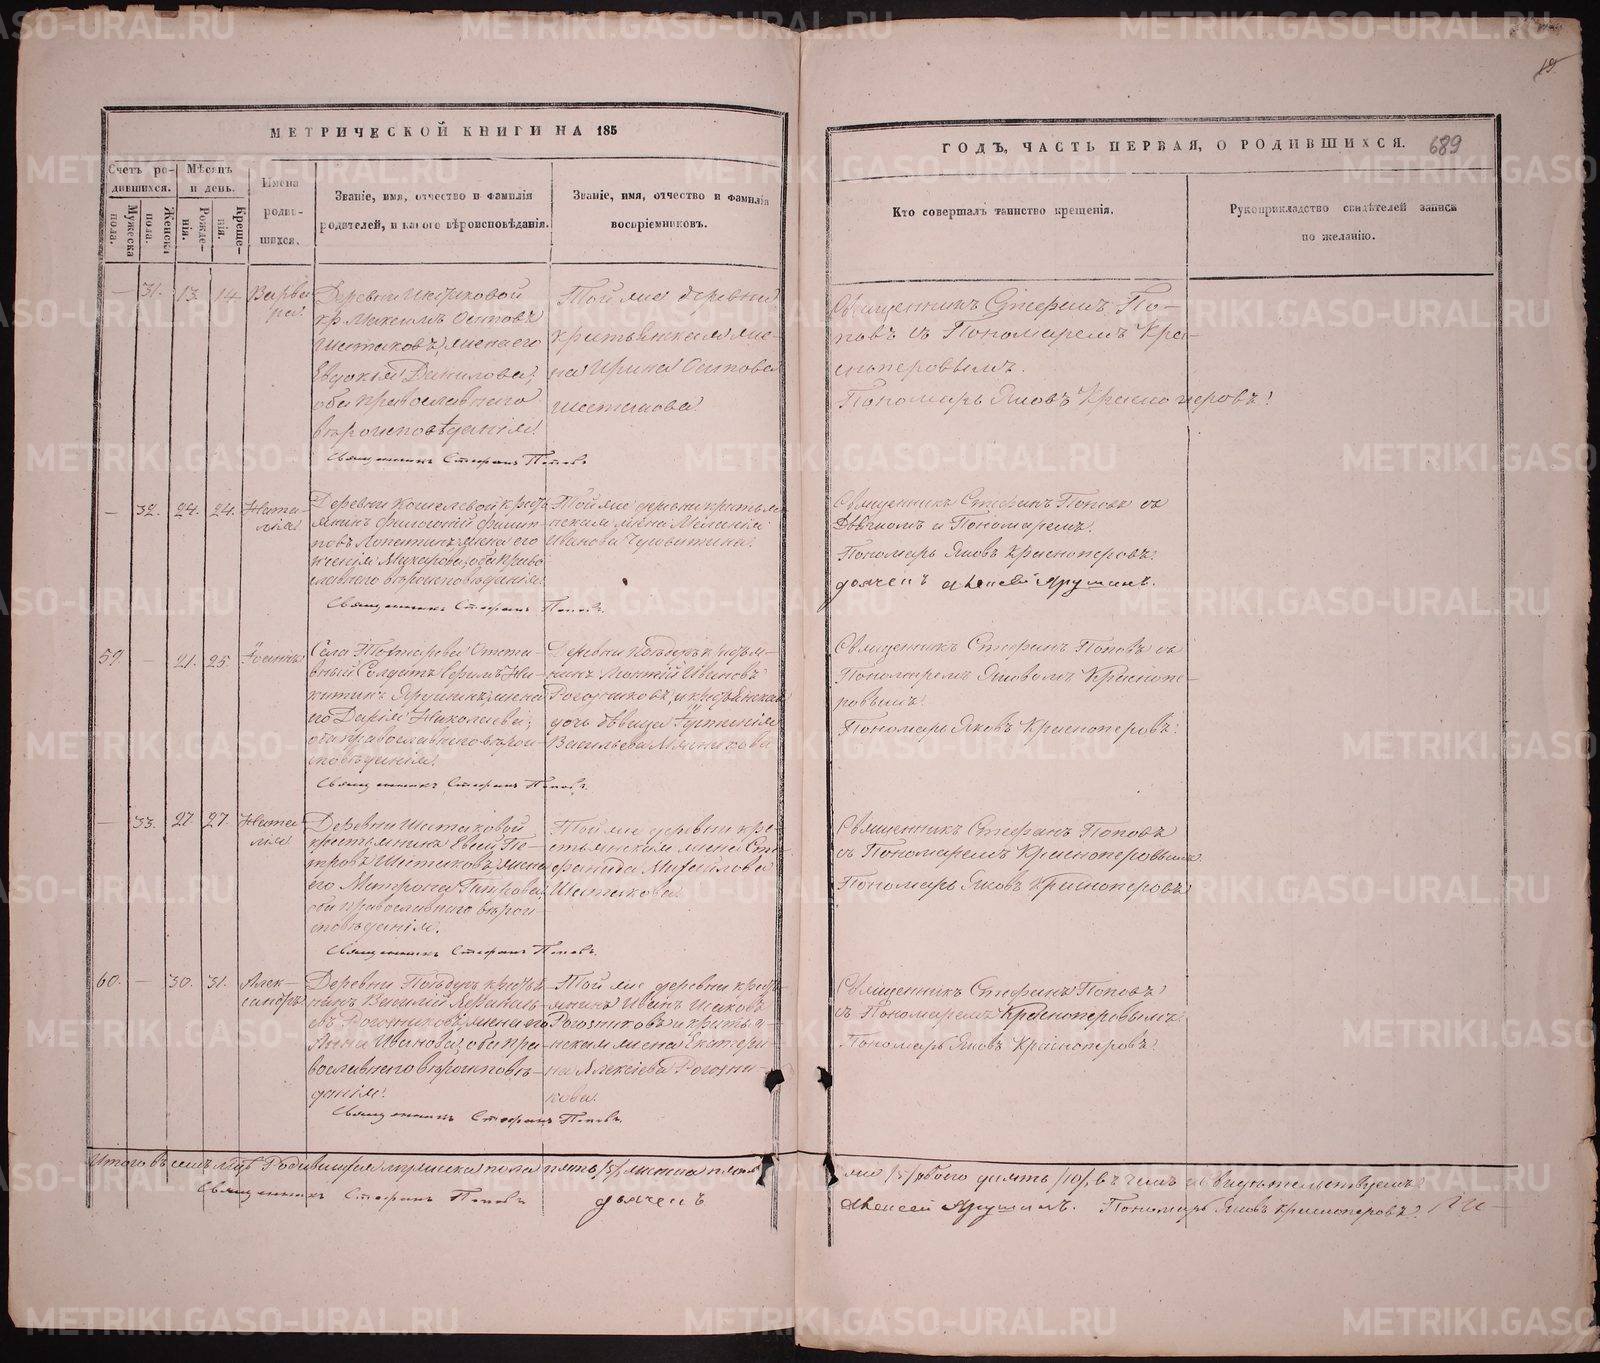 МЕТРИЧЕСКОЙ КНИГИ НА 185
ГОДЪ, ЧАСТЬ ПЕРВАЯ, О РОДИВШИХСЯ. 689
Счетъ ро-
дившихся.
Мужеска
пола.
Женска
пола.
Мѣсяцъ
и день.
Рожде-
нія.
Креще-
нія.
Имена
роди-
шихся.
Званіе, имя, отчество и фамилія
родителей, и какого вѣроисповѣданія.
Званіе, имя, отчество и фамилія
воспріемниковъ.
Кто совершалъ таинство крещенія.
Рукоприкладство свидѣтелей записи
по желанію.
— 31. 13. 14. Варва
ра.
Деревни
кр. Максимъ Осиповъ
Шестаковъ, жена его
Евдокія Данилова,
оба православнаго
вѣроисповѣданія.
Священникъ Стефанъ Поповъ
Той же деревни
крестьянская же-
на Ирина Осипова
Шестакова.
Священникъ Стефанъ По-
повъ съ Пономаремъ Кра-
сноперовымъ.
Пономарь Яковъ Красноперовъ.
— 32. 24. 24. Ната-
лія
Деревни Кошелевой кресть
янинъ Филип-
повъ Лопатинъ, жена его
Ксенія Макарова, оба право
славнаго вѣроисповѣданія.
Священникъ Стефанъ Поповъ.
Той же деревни крестья
нская жена
Иванова Чувитина.
Священникъ Стефанъ Поповъ съ
Дьячкомъ и Пономаремъ.
Пономарь Яковъ Красноперовъ.
дьячекъ Алексей Ярушинъ.
59. — 21. 25. Іоаннъ
Села Отста-
вный Солдатъ Ни-
китинъ Ярушинъ, жена
его Дарія Николаева;
оба православнаго вѣрои-
сповѣданія.
Священникъ Стефанъ Поповъ.
Деревни крестья-
нинъ Ивановъ
Рогозниковъ, и крестьянская
дочь дѣвица Іустинія
Васильева Мясникова
Священникъ Стефанъ Поповъ съ
Пономаремъ Яковомъ Краснопе-
ровымъ.
Пономарь Яковъ Красноперовъ.
— 33. 27. 27. Ната-
лія
Деревни Шестаковой
крестьянинъ Евсей Пе-
тровъ Шестаковъ, жена
его Матрона Петрова,
оба православнаго вѣрои-
сповѣданія.
Священникъ Стефанъ Поповъ.
Той же деревни кре-
стьянская жена Сте-
фанида Михайлова
Шестакова.
Священникъ Стефанъ Поповъ
съ Пономаремъ Красноперовымъ
Пономарь Яковъ Красноперовъ
60. — 30. 31. Алек-
сандръ
Деревни кресть
янинъ Василій Афанась-
евъ Рогозниковъ, жена его
Анна Иванова, оба пра-
вославнаго вѣроисповѣ-
данія.
Священникъ Стефанъ Поповъ.
Той же деревни кресть-
янинъ Иванъ Исаковъ
Рогозниковъ и крестья-
нская жена Екатери-
на Алексіева Рогозни-
кова.
Священникъ Стефанъ Поповъ
съ Пономаремъ Красноперовымъ.
Пономарь Яковъ Красноперовъ.
Итого въ семъ м-цѣ Родившихся мужеска пола пять /5/, женска пола
же /5/ обоего десять /10/, въ чемъ и свидѣтельствуемъ:
Священникъ Стефанъ Поповъ дьячекъ
Алексей Ярушинъ. Пономарь Яковъ Красноперовъ.
METRIKI.GASO-URAL.RU